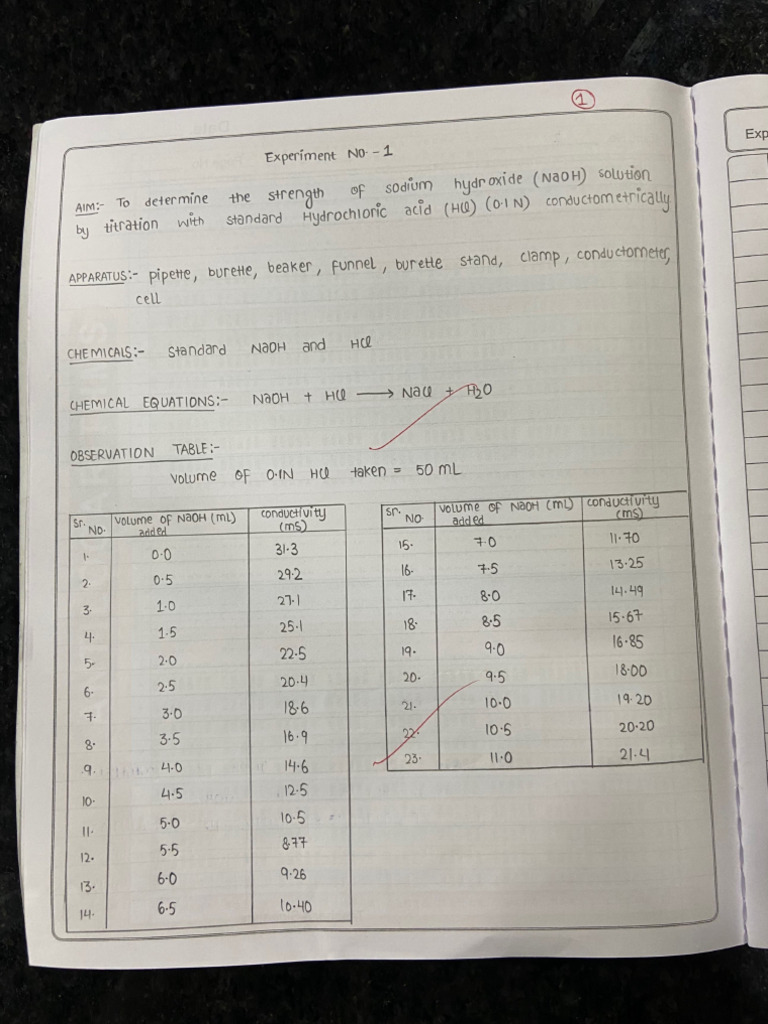 1
Experiment No. - 1
Exp
AIM:- To determine the strength of sodium hydroxide (NaOH) solution
by titration with standard Hydrochloric acid (HCl) (0.1 N) conductometrically
APPARATUS:- pipette, burette, beaker, funnel, burette stand, clamp, conductometer,
cell
CHEMICALS:- Standard NaOH and HCl
CHEMICAL EQUATIONS:- NaOH + HCl ⟶ NaCl + H₂O
OBSERVATION TABLE:-
Volume of 0.1N HCl taken = 50 mL
Sr. No. Volume of NaOH (mL) added conductivity (ms)
1. 0.0 31.3
2. 0.5 29.2
3. 1.0 27.1
4. 1.5 25.1
5. 2.0 22.5
6. 2.5 20.4
7. 3.0 18.6
8. 3.5 16.9
9. 4.0 14.6
10. 4.5 12.5
11. 5.0 10.5
12. 5.5 8.77
13. 6.0 9.26
14. 6.5 10.40
Sr. No. Volume of NaOH (mL) added conductivity (ms)
15. 7.0 11.70
16. 7.5 13.25
17. 8.0 14.49
18. 8.5 15.67
19. 9.0 16.85
20. 9.5 18.00
21. 10.0 19.20
22. 10.5 20.20
23. 11.0 21.4